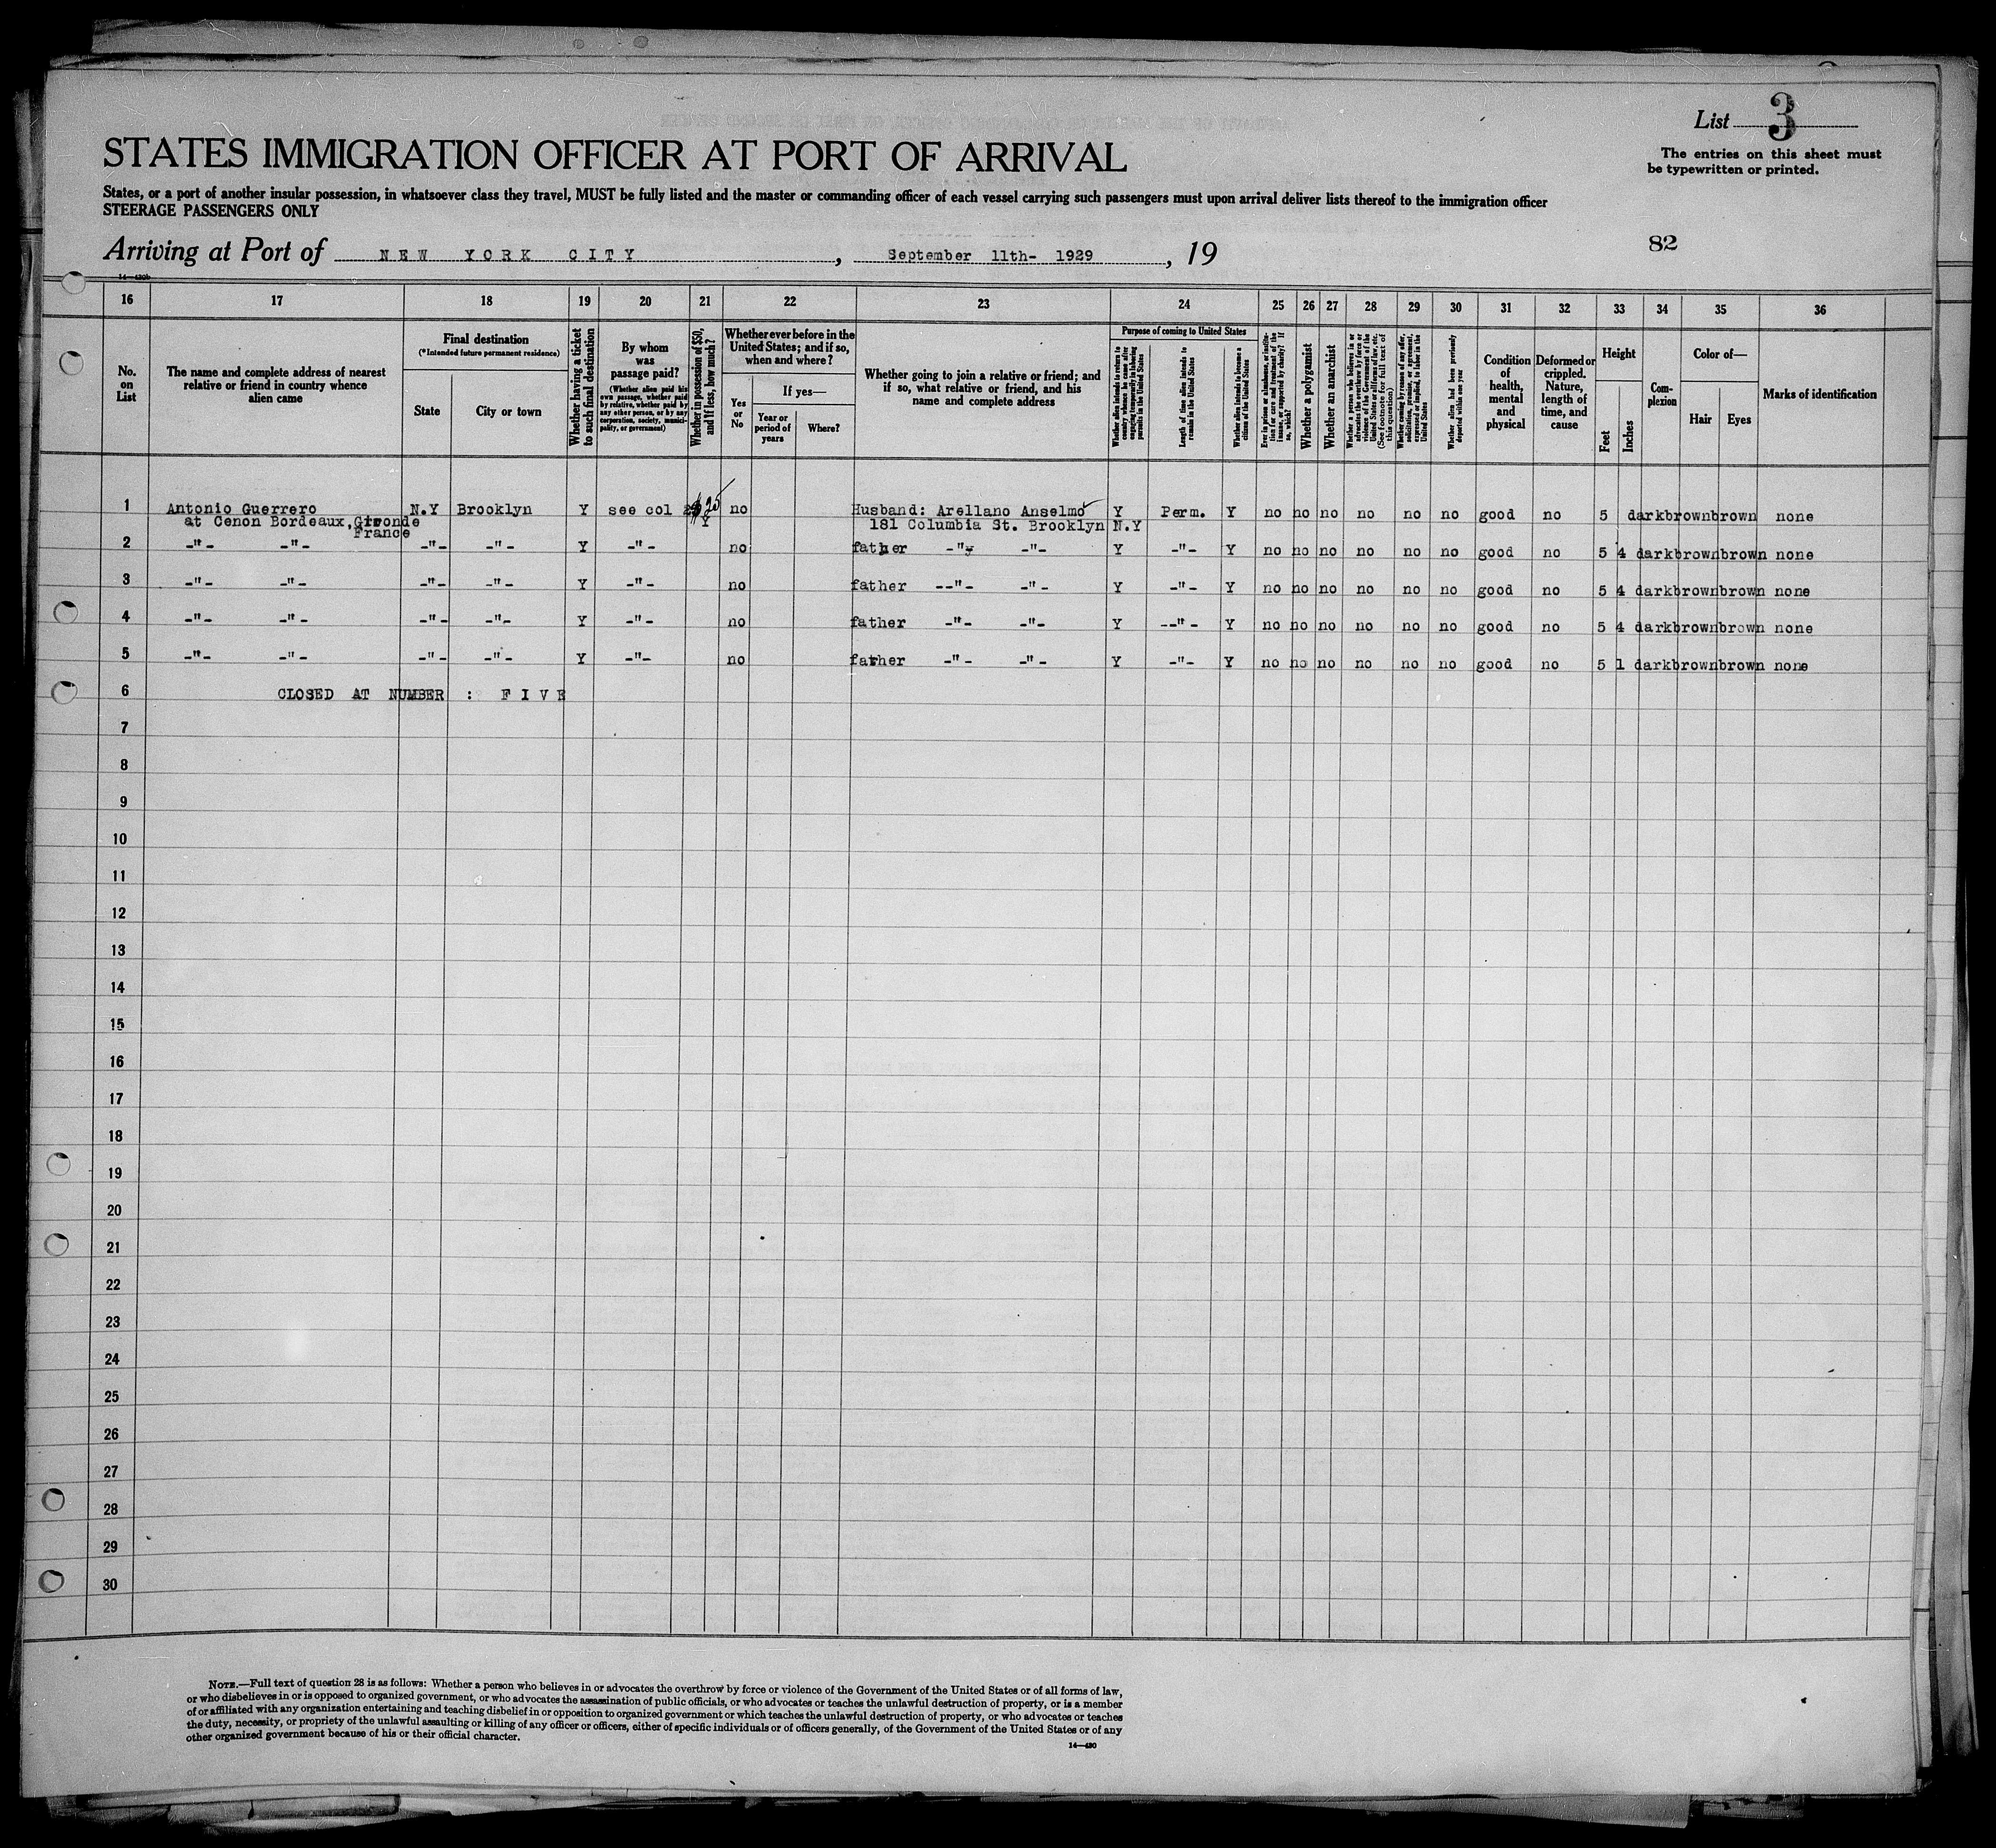 List 3
The entries on this sheet must
be typewritten or printed.
STATES IMMIGRATION OFFICER AT PORT OF ARRIVAL
States, or a port of another insular possession, in whatsoever class they travel, MUST be fully listed and the master or commanding officer of each vessel carrying such passengers must upon arrival deliver lists thereof to the immigration officer
STEERAGE PASSENGERS ONLY
Arriving at Port of NEW YORK CITY, September 11th- 1929, 19
82
14—430b
16 17 18 19 20 21 22 23 24 25 26 27 28 29 30 31 32 33 34 35 36
No. on List
The name and complete address of nearest relative or friend in country whence alien came
Final destination
(*Intended future permanent residence)
State
City or town
Whether having a ticket to such final destination
By whom was passage paid?
(Whether alien paid his own passage, whether paid by relative, whether paid by any other person, or by any corporation, society, municipality, or government)
Whether in possession of $50, and if less, how much?
Whether ever before in the United States; and if so, when and where?
Yes or No
If yes—
Year or period of years
Where?
Whether going to join a relative or friend; and if so, what relative or friend, and his name and complete address
Purpose of coming to United States
Whether alien intends to return to country whence he came after engaging temporarily in laboring pursuits in the United States
Length of time alien intends to remain in the United States
Whether alien intends to become a citizen of the United States
Ever in prison or almshouse, or institution for care and treatment of the insane, or supported by charity? If so, which?
Whether a polygamist
Whether an anarchist
Whether a person who believes in or advocates the overthrow by force or violence of the Government of the United States or all forms of law, etc. (See footnote for full text of this question)
Whether coming by reason of any offer, solicitation, promise, or agreement, expressed or implied, to labor in the United States
Whether alien had been previously deported within one year
Condition of health, mental and physical
Deformed or crippled. Nature, length of time, and cause
Height
Feet
Inches
Com-plexion
Color of—
Hair
Eyes
Marks of identification
1 Antonio Guerrero N.Y Brooklyn Y see col $25 no Husband: Arellano Anselmo Y Perm. Y no no no no no no good no 5 dark brown brown none
at Cenon Bordeaux, Gironde Y 181 Columbia St. Brooklyn N.Y
France
2 -"- -"- -"- -"- Y -"- no father -"- -"- Y -"- Y no no no no no no good no 5 4 dark brown brown none
3 -"- -"- -"- -"- Y -"- no father --"- -"- Y -"- Y no no no no no no good no 5 4 dark brown brown none
4 -"- -"- -"- -"- Y -"- no father -"- -"- Y --"- Y no no no no no no good no 5 4 dark brown brown none
5 -"- -"- -"- -"- Y -"- no father -"- -"- Y -"- Y no no no no no no good no 5 1 dark brown brown none
6 CLOSED AT NUMBER : FIVE
7
8
9
10
11
12
13
14
15
16
17
18
19
20
21
22
23
24
25
26
27
28
29
30
NOTE.—Full text of question 28 is as follows: Whether a person who believes in or advocates the overthrow by force or violence of the Government of the United States or of all forms of law,
or who disbelieves in or is opposed to organized government, or who advocates the assassination of public officials, or who advocates or teaches the unlawful destruction of property, or is a member
of or affiliated with any organization entertaining and teaching disbelief in or opposition to organized government or which teaches the unlawful destruction of property, or who advocates or teaches
the duty, necessity, or propriety of the unlawful assaulting or killing of any officer or officers, either of specific individuals or of officers generally, of the Government of the United States or of any
other organized government because of his or their official character.
14—430